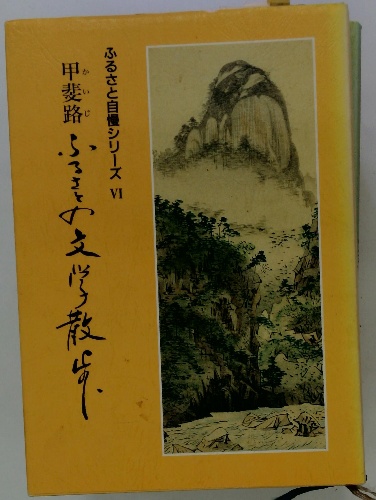 ふるさと自慢シリーズ Ⅵ
かいじ
甲斐路
ふるさとの文学散歩